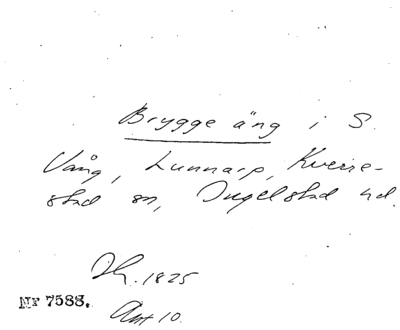 Brygge äng i S.
Vång, Lunnarp, Kverre-
stad sn, Ingelstad hd.
Sk. 1825
Akt 10.
Nr 7588.